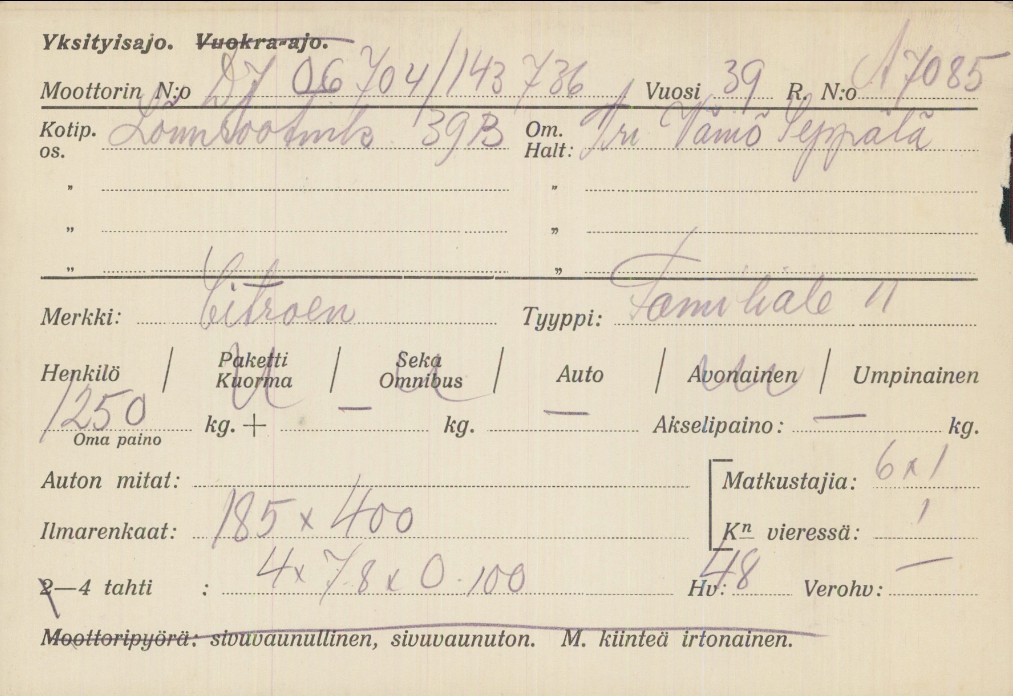 Yksityisajo. Vuokra-ajo.
Moottorin N:o DJ 06704/143736 Vuosi 39 R. N:o A7085
Kotip. os. 39B Om. Halt: Väinö Seppälä
" "
" "
" "
Merkki: Citroen Tyyppi: Familiale 11
Henkilö / Paketti Kuorma / Seka Omnibus / Auto / Avonainen / Umpinainen
1250 kg. + — kg. — Akselipaino: — kg.
Oma paino
Auton mitat: Matkustajia: 6x1
Ilmarenkaat: 185 x 400 Kn vieressä: 1
2—4 tahti : 4x78x0.100 Hv: 48 Verohv: —
Moottoripyörä: sivuvaunullinen, sivuvaunuton. M. kiinteä irtonainen.